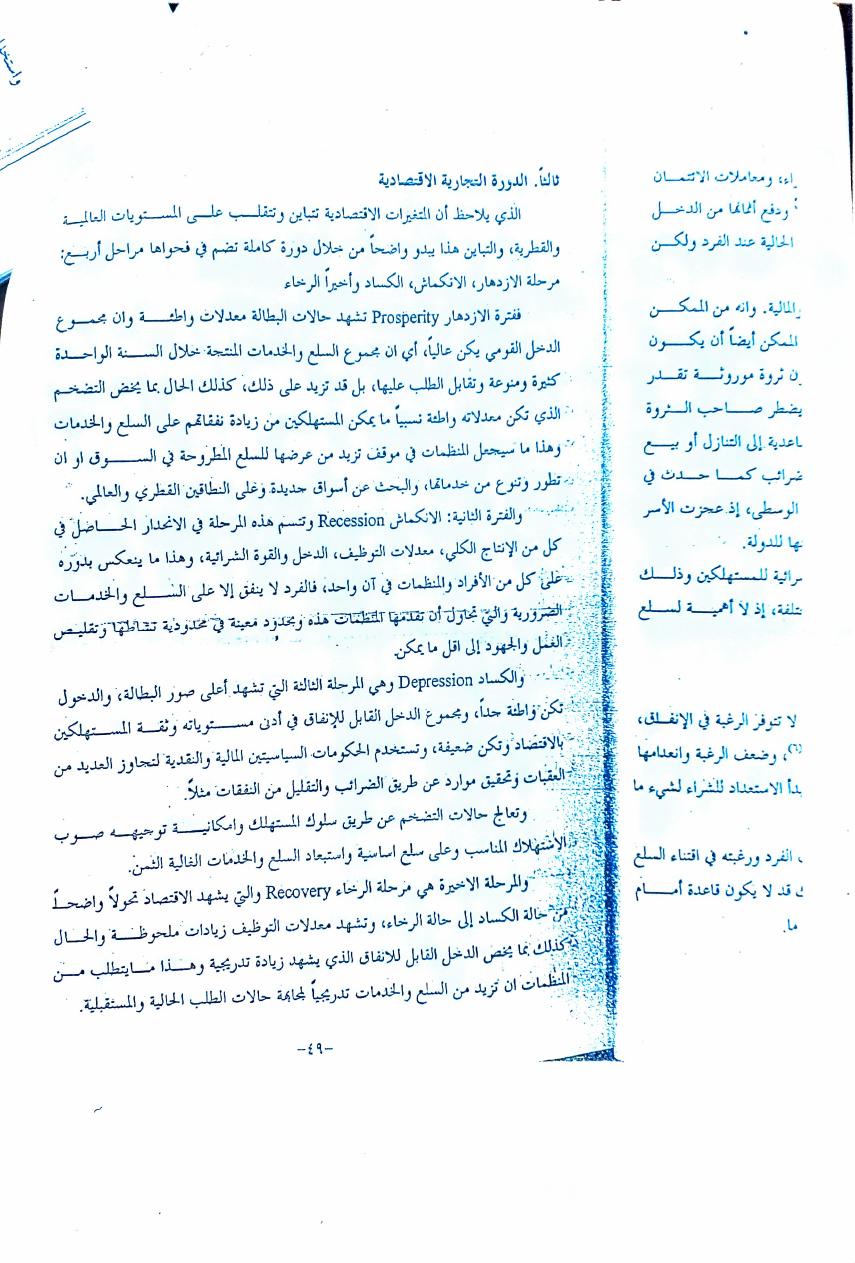 ثالثاً. الدورة التجارية الاقتصادية
الذي يلاحظ أن المتغيرات الاقتصادية تتباين وتتقلب على المستويات العالمية
والقطرية، والتباين هذا يبدو واضحاً من خلال دورة كاملة تضم في فحواها مراحل أربع:
مرحلة الازدهار، الانكماش، الكساد وأخيراً الرخاء
ففترة الازدهار Prosperity تشهد حالات البطالة معدلات واطئة وان مجموع
الدخل القومي يكن عالياً، أي ان مجموع السلع والخدمات المنتجة خلال السنة الواحدة
كثيرة ومنوعة وتقابل الطلب عليها، بل قد تزيد على ذلك، كذلك الحال بما يخص التضخم
الذي تكن معدلاته واطئة نسبياً ما يمكن المستهلكين من زيادة نفقاتهم على السلع والخدمات
وهذا ما سيجعل المنظمات في موقف تزيد من عرضها للسلع المطروحة في السوق او ان
تطور وتنوع من خدماتها، والبحث عن أسواق جديدة وعلى النطاقين القطري والعالمي.
والفترة الثانية: الانكماش Recession وتتسم هذه المرحلة في الانحدار الحاصل في
كل من الإنتاج الكلي، معدلات التوظيف، الدخل والقوة الشرائية، وهذا ما ينعكس بدوره
على كل من الأفراد والمنظمات في آن واحد، فالفرد لا ينفق إلا على السلع والخدمات
الضرورية والتي تحاول أن تقدمها المنظمات هذه وبحدود معينة في محدودية نشاطها وتقليص
العمل والجهود إلى اقل ما يمكن.
والكساد Depression وهي المرحلة الثالثة التي تشهد أعلى صور البطالة، والدخول
تكن واطئة جداً، ومجموع الدخل القابل للإنفاق في أدنى مستوياته وثقة المستهلكين
بالاقتصاد وتكن ضعيفة، وتستخدم الحكومات السياسيتين المالية والنقدية لتجاوز العديد من
العقبات وتحقيق موارد عن طريق الضرائب والتقليل من النفقات مثلاً.
وتعالج حالات التضخم عن طريق سلوك المستهلك وامكانية توجيهه صوب
الاستهلاك المناسب وعلى سلع اساسية واستبعاد السلع والخدمات الغالية الثمن.
والمرحلة الاخيرة هي مرحلة الرخاء Recovery والتي يشهد الاقتصاد تحولاً واضحاً
من حالة الكساد إلى حالة الرخاء، وتشهد معدلات التوظيف زيادات ملحوظة والحال
كذلك بما يخص الدخل القابل للانفاق الذي يشهد زيادة تدريجية وهذا مايتطلب من
المنظمات ان تزيد من السلع والخدمات تدريجياً لمجابهة حالات الطلب الحالية والمستقبلية.
-٤٩-
ومعاملات الائتمان
ودفع أثمانها من الدخل
الحالية عند الفرد ولكن
المالية. وانه من الممكن
الممكن أيضاً أن يكون
ثروة موروثة تقدر
يضطر صاحب الثروة
إلى التنازل أو بيع
كما حدث في
الوسطى، إذ عجزت الأسر
للدولة.
للمستهلكين وذلك
إذ لا أهمية لسلع
لا تتوفر الرغبة في الإنفاق،
وضعف الرغبة وانعدامها
الاستعداد للشراء لشيء ما
الفرد ورغبته في اقتناء السلع
قد لا يكون قاعدة أمام
ما.